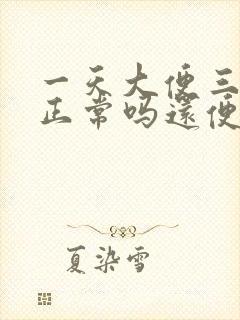 一天大便三
正常吗还便
夏染雪